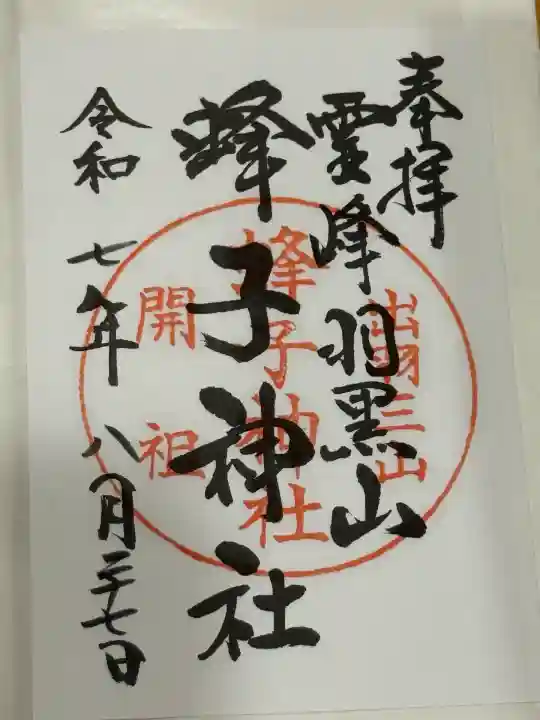 奉拝
霊峰羽黒山
蜂子神社
令和七年八月二十七日
出羽三山
蜂子神社
開祖